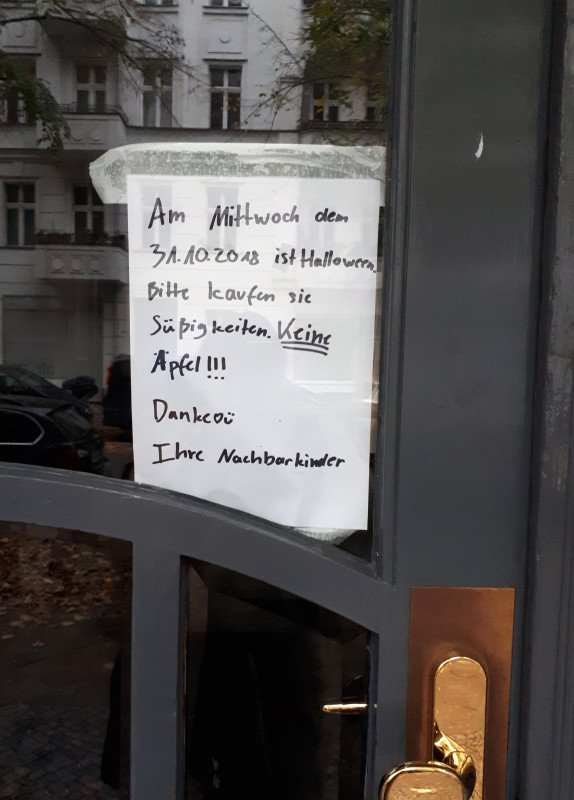 Am Mittwoch dem
31.10.2018 ist Halloween.
Bitte kaufen sie
Süßigkeiten. Keine
Äpfel!!!
Danke ü
Ihre Nachbarkinder